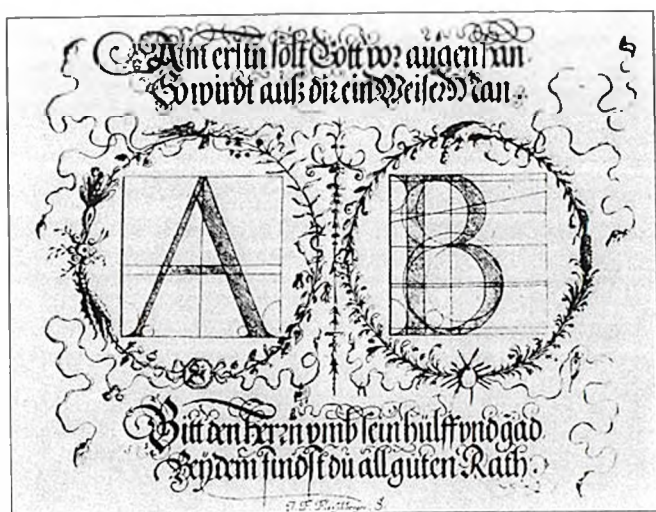 Am erstin solt Gott vor augen han
So wirdt auß dir ein Weiser Man.
A B
Bitt den herrn vmb sein hülff vnd gad
Bey dem findst du all guten Rath.